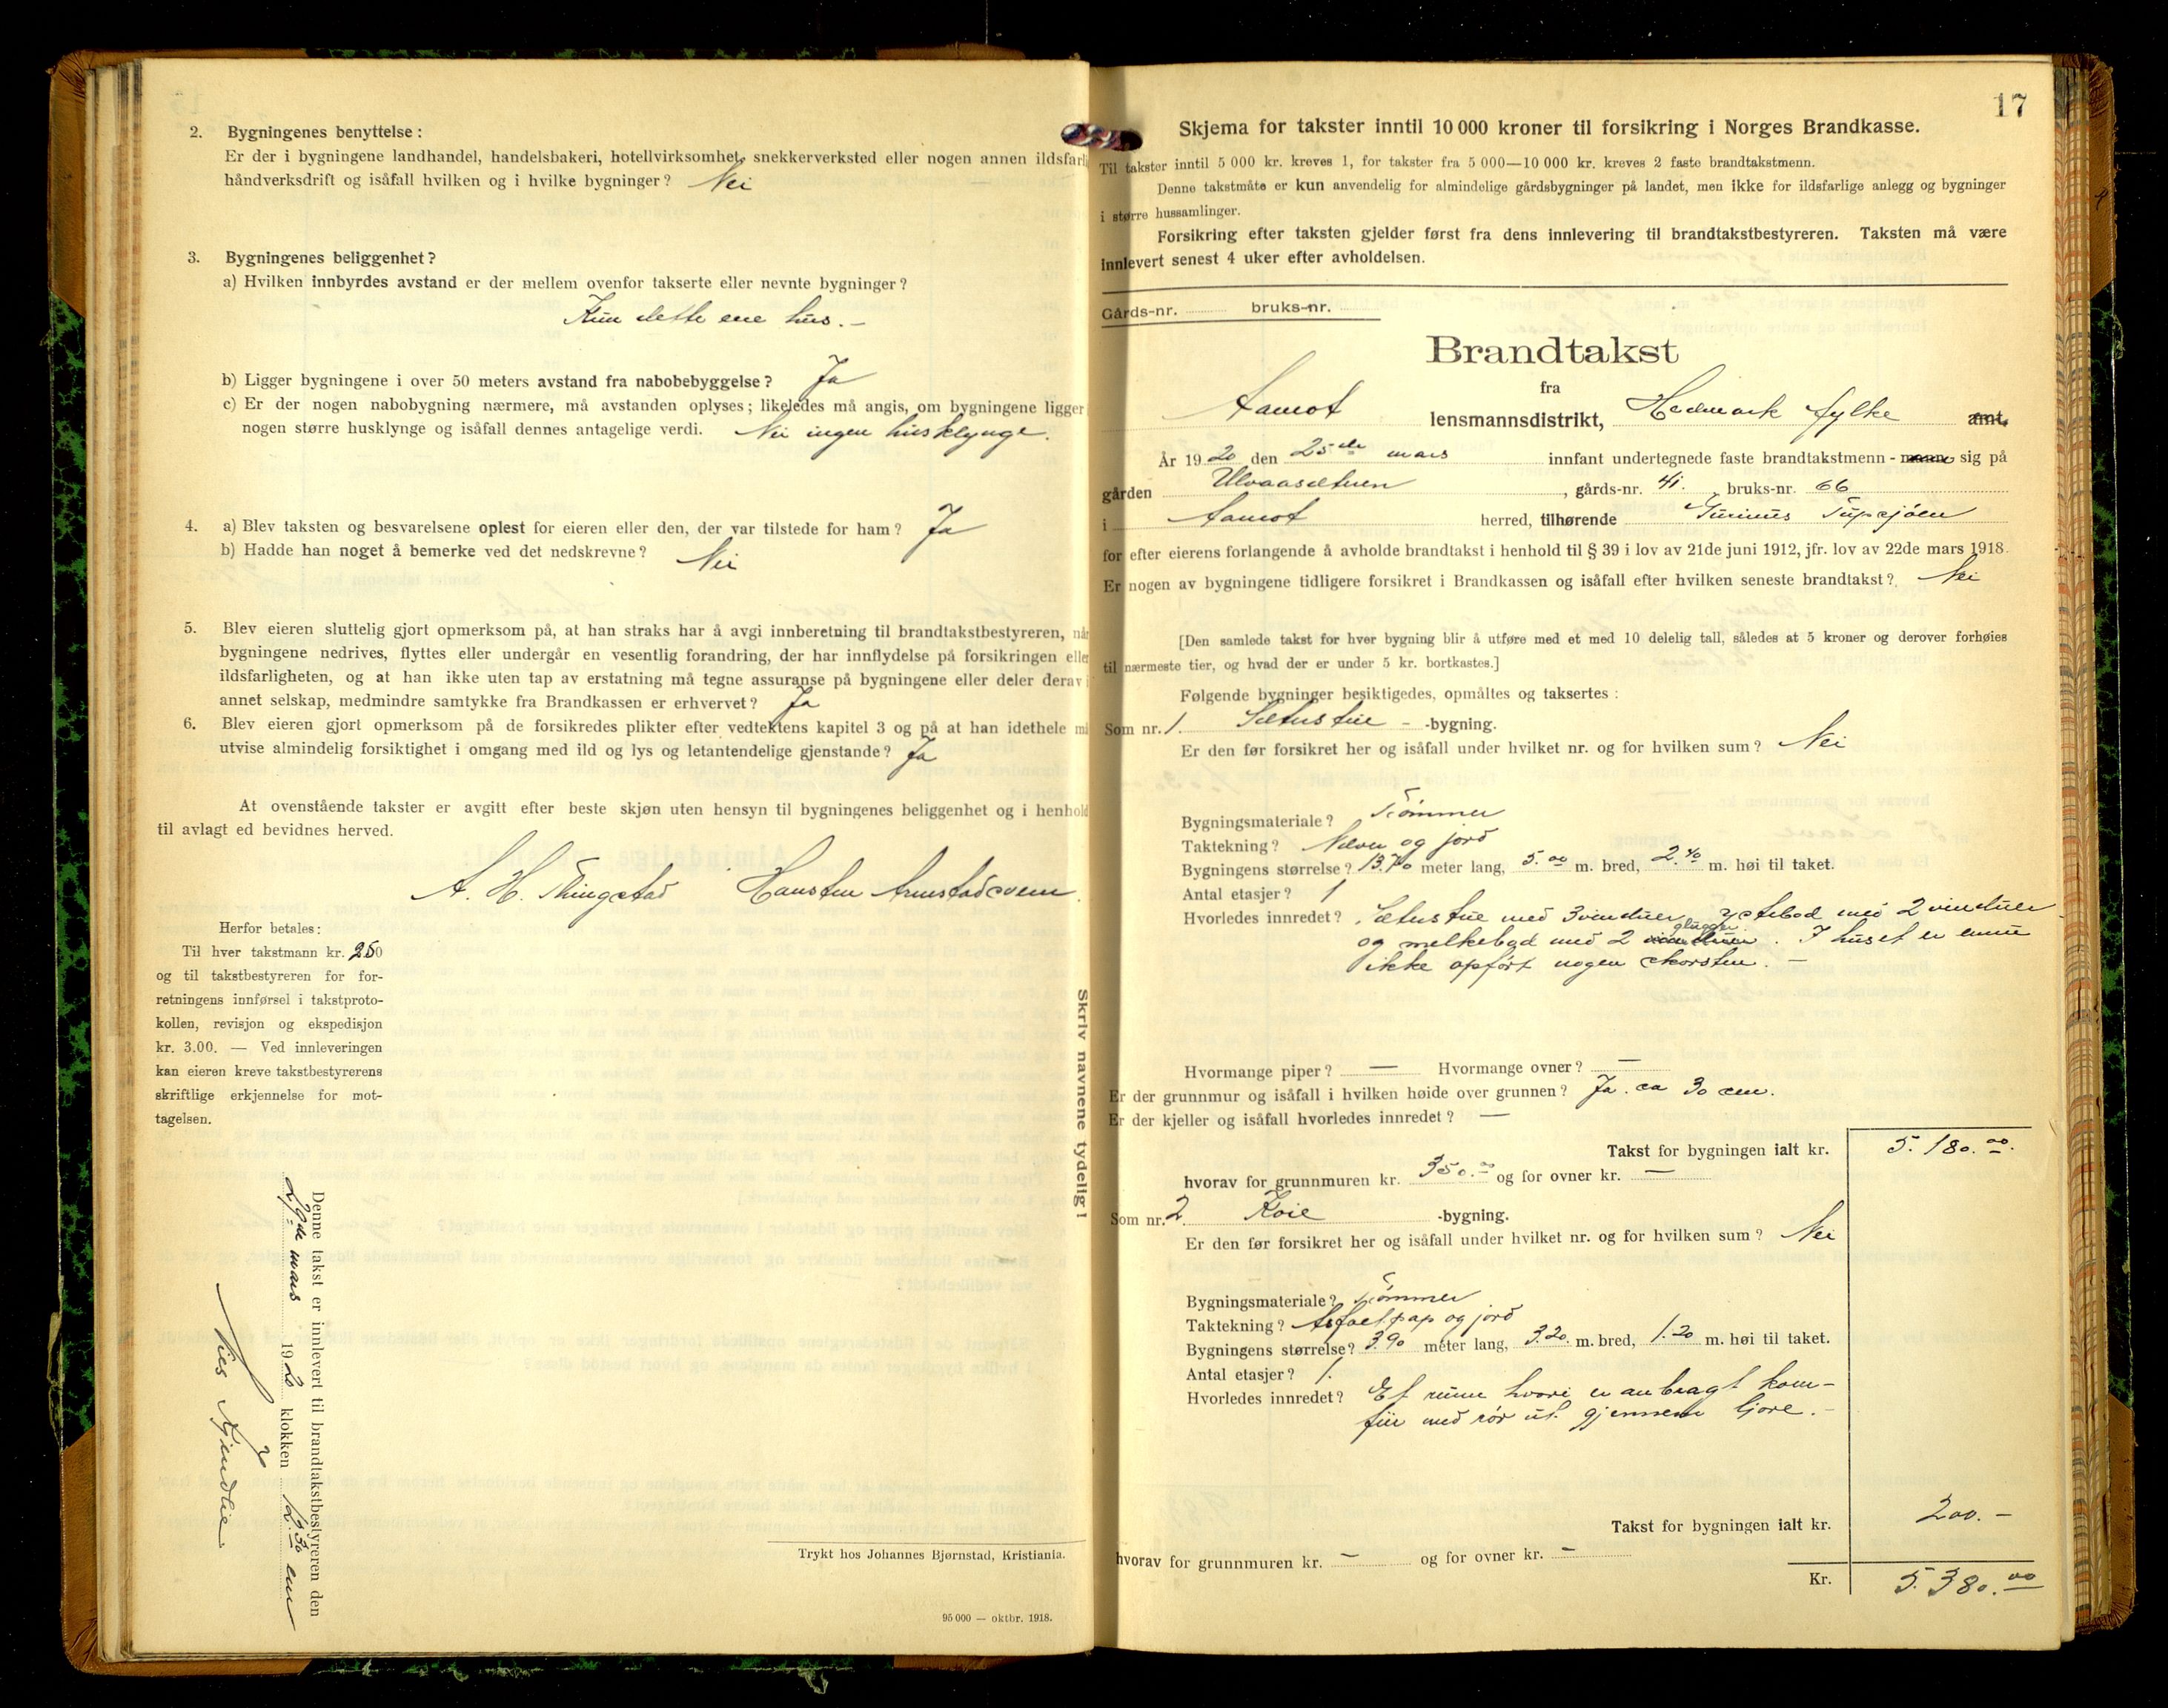 2. Bygningenes benyttelse:
Er der i bygningene landhandel, handelsbakeri, hotellvirksomhet, snekkerverksted eller nogen annen ildsfarli
håndverksdrift og isåfall hvilken og i hvilke bygninger? Nei
3. Bygningenes beliggenhet?
a) Hvilken innbyrdes avstand er der mellem ovenfor takserte eller nevnte bygninger?
Kun dette ene hus. -
b) Ligger bygningene i over 50 meters avstand fra nabobebyggelse? Ja
c) Er der nogen nabobygning nærmere, må avstanden oplyses; likeledes må angis, om bygningene ligger
nogen større husklynge og isåfall dennes antagelige verdi. Nei ingen husklynge.
4. a) Blev taksten og besvarelsene oplest for eieren eller den, der var tilstede for ham? Ja
b) Hadde han noget å bemerke ved det nedskrevne? Nei
5. Blev eieren sluttelig gjort opmerksom på, at han straks har å avgi innberetning til brandtakstbestyreren, når
bygningene nedrives, flyttes eller undergår en vesentlig forandring, der har innflydelse på forsikringen eller
ildsfarligheten, og at han ikke uten tap av erstatning må tegne assuranse på bygningene eller deler derav i
annet selskap, medmindre samtykke fra Brandkassen er erhvervet? Ja
6. Blev eieren gjort opmerksom på de forsikredes plikter efter vedtektens kapitel 3 og på at han idethele må
utvise almindelig forsiktighet i omgang med ild og lys og letantendelige gjenstande? Ja
At ovenstående takster er avgitt efter beste skjøn uten hensyn til bygningenes beliggenhet og i henhold
til avlagt ed bevidnes herved.
A. H. Thingstad Hansten Arnestadsveen.
Herfor betales:
Til hver takstmann kr. 250
og til takstbestyreren for for-
retningens innførsel i takstproto-
kollen, revisjon og ekspedisjon
kr. 3.00. — Ved innleveringen
kan eieren kreve takstbestyrerens
skriftlige erkjennelse for mot-
tagelsen.
Denne takst er innlevert til brandtakstbestyreren den
29de mars 1920 klokken 12.30 em
Nies Kjendlie
Skriv navnene tydelig!
Trykt hos Johannes Bjørnstad, Kristiania.
95 000 — oktbr. 1918.
17
Skjema for takster inntil 10 000 kroner til forsikring i Norges Brandkasse.
Til takster inntil 5 000 kr. kreves 1, for takster fra 5 000—10 000 kr. kreves 2 faste brandtakstmenn.
Denne takstmåte er kun anvendelig for almindelige gårdsbygninger på landet, men ikke for ildsfarlige anlegg og bygninger
i større hussamlinger.
Forsikring efter taksten gjelder først fra dens innlevering til brandtakstbestyreren. Taksten må være
innlevert senest 4 uker efter avholdelsen.
Gårds-nr. bruks-nr.
Brandtakst
fra
Aamot lensmannsdistrikt, Hedmark fylke amt.
År 1920 den 25de mars innfant undertegnede faste brandtakstmenn - mann sig på
gården Ulvaasætren, gårds-nr. 41. bruks-nr. 66
i Aamot herred, tilhørende Gurinus Tupsjøen
for efter eierens forlangende å avholde brandtakst i henhold til § 39 i lov av 21de juni 1912, jfr. lov av 22de mars 1918.
Er nogen av bygningene tidligere forsikret i Brandkassen og isåfall efter hvilken seneste brandtakst? Nei
[Den samlede takst for hver bygning blir å utføre med et med 10 delelig tall, således at 5 kroner og derover forhøies
til nærmeste tier, og hvad der er under 5 kr. bortkastes.]
Følgende bygninger besiktigedes, opmåltes og taksertes:
Som nr. 1. Sæterstue - -bygning.
Er den før forsikret her og isåfall under hvilket nr. og for hvilken sum? Nei
Bygningsmateriale? Tømmer
Taktekning? Næver og jord
Bygningens størrelse? 13.70 meter lang, 5.00 m. bred, 2.40 m. høi til taket.
Antal etasjer? 1
Hvorledes innredet? Sæterstue med 3 vinduer, ystebod med 2 vinduer
og melkebod med 2 vinduer glugger. I huset er ennu
ikke opført nogen skorsten. -
Hvormange piper? — Hvormange ovner? —
Er der grunnmur og isåfall i hvilken høide over grunnen? Ja. ca 30 cm.
Er der kjeller og isåfall hvorledes innredet? —
Takst for bygningen ialt kr. 5.180.00.
hvorav for grunnmuren kr. 350.00 og for ovner kr. —
Som nr. 2. Koie -bygning.
Er den før forsikret her og isåfall under hvilket nr. og for hvilken sum? Nei
Bygningsmateriale? Tømmer
Taktekning? Asfaltpap og jord
Bygningens størrelse? 3.90 meter lang, 3.20. m. bred, 1.20 m. høi til taket.
Antal etasjer? 1.
Hvorledes innredet? Et rum hvori er anbragt kom-
fur med rør ut gjennem ljore. -
Takst for bygningen ialt kr. 200. -
hvorav for grunnmuren kr. - og for ovner kr. -
Kr. 5.380.00